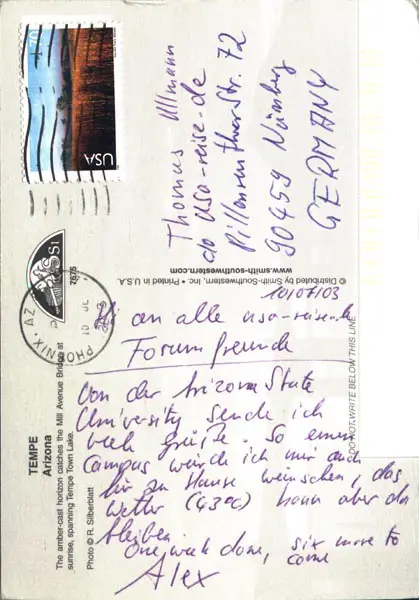 TEMPE
Arizona
The amber-cast horizon catches the Mill Avenue Bridge at
sunrise, spanning Tempe Town Lake.
Photo © R. Silberblatt
10/07/03
Hi an alle usa-reise.de
Forumfreunde
Von der Arizona State
University sende ich
viele Grüße. So einen
Campus würde ich mir auch
für zu Hause wünschen, das
Wetter (43°C) kann aber da
bleiben
One week done, six more to
come
Alex
PHOENIX, AZ
7675
© Distributed by Smith-Southwestern, Inc. • Printed in U.S.A.
www.smith-southwestern.com
DO NOT WRITE BELOW THIS LINE
USA
70
Thomas Ullmann
c/o usa-reise.de
Pillenreuther Str. 72
90459 Nürnberg
GERMANY